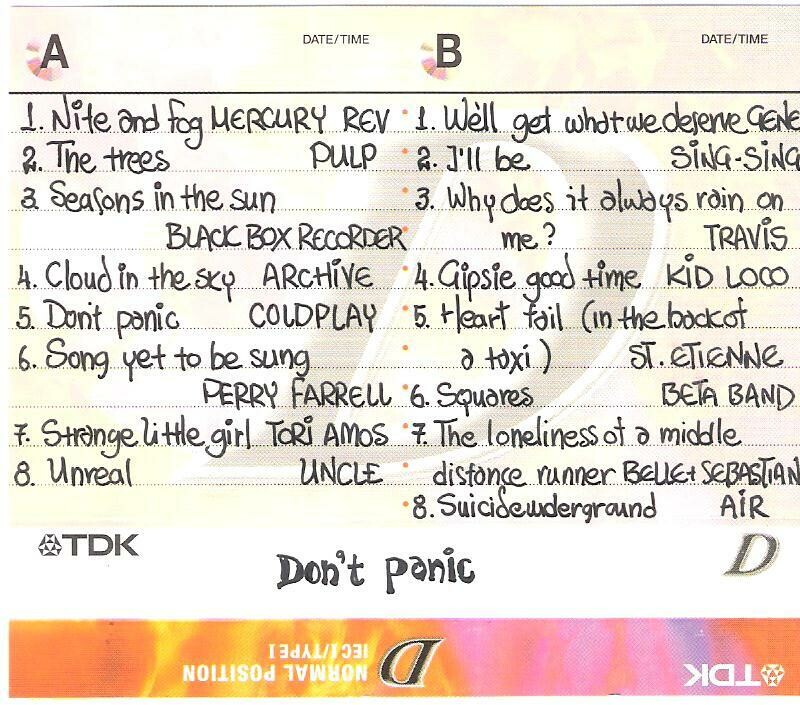 A DATE/TIME
1. Nite and fog MERCURY REV
2. The trees PULP
3. Seasons in the sun
BLACK BOX RECORDER
4. Cloud in the sky ARCHIVE
5. Don't panic COLDPLAY
6. Song yet to be sung
PERRY FARRELL
7. Strange little girl TORI AMOS
8. Unreal UNCLE
B DATE/TIME
1. We'll get what we deserve GENE
2. I'll be SiNG-SiNG
3. Why does it always rain on
me? TRAVIS
4. Gipsie good time KiD LOCO
5. Heart fail (in the back of
a taxi) ST. ETIENNE
6. Squares BETA BAND
7. The loneliness of a middle
distance runner BELLE + SEBASTIAN
8. Suicide underground AiR
TDK
Don't panic
D
D NORMAL POSITION
IEC I/TYPE I
TDK